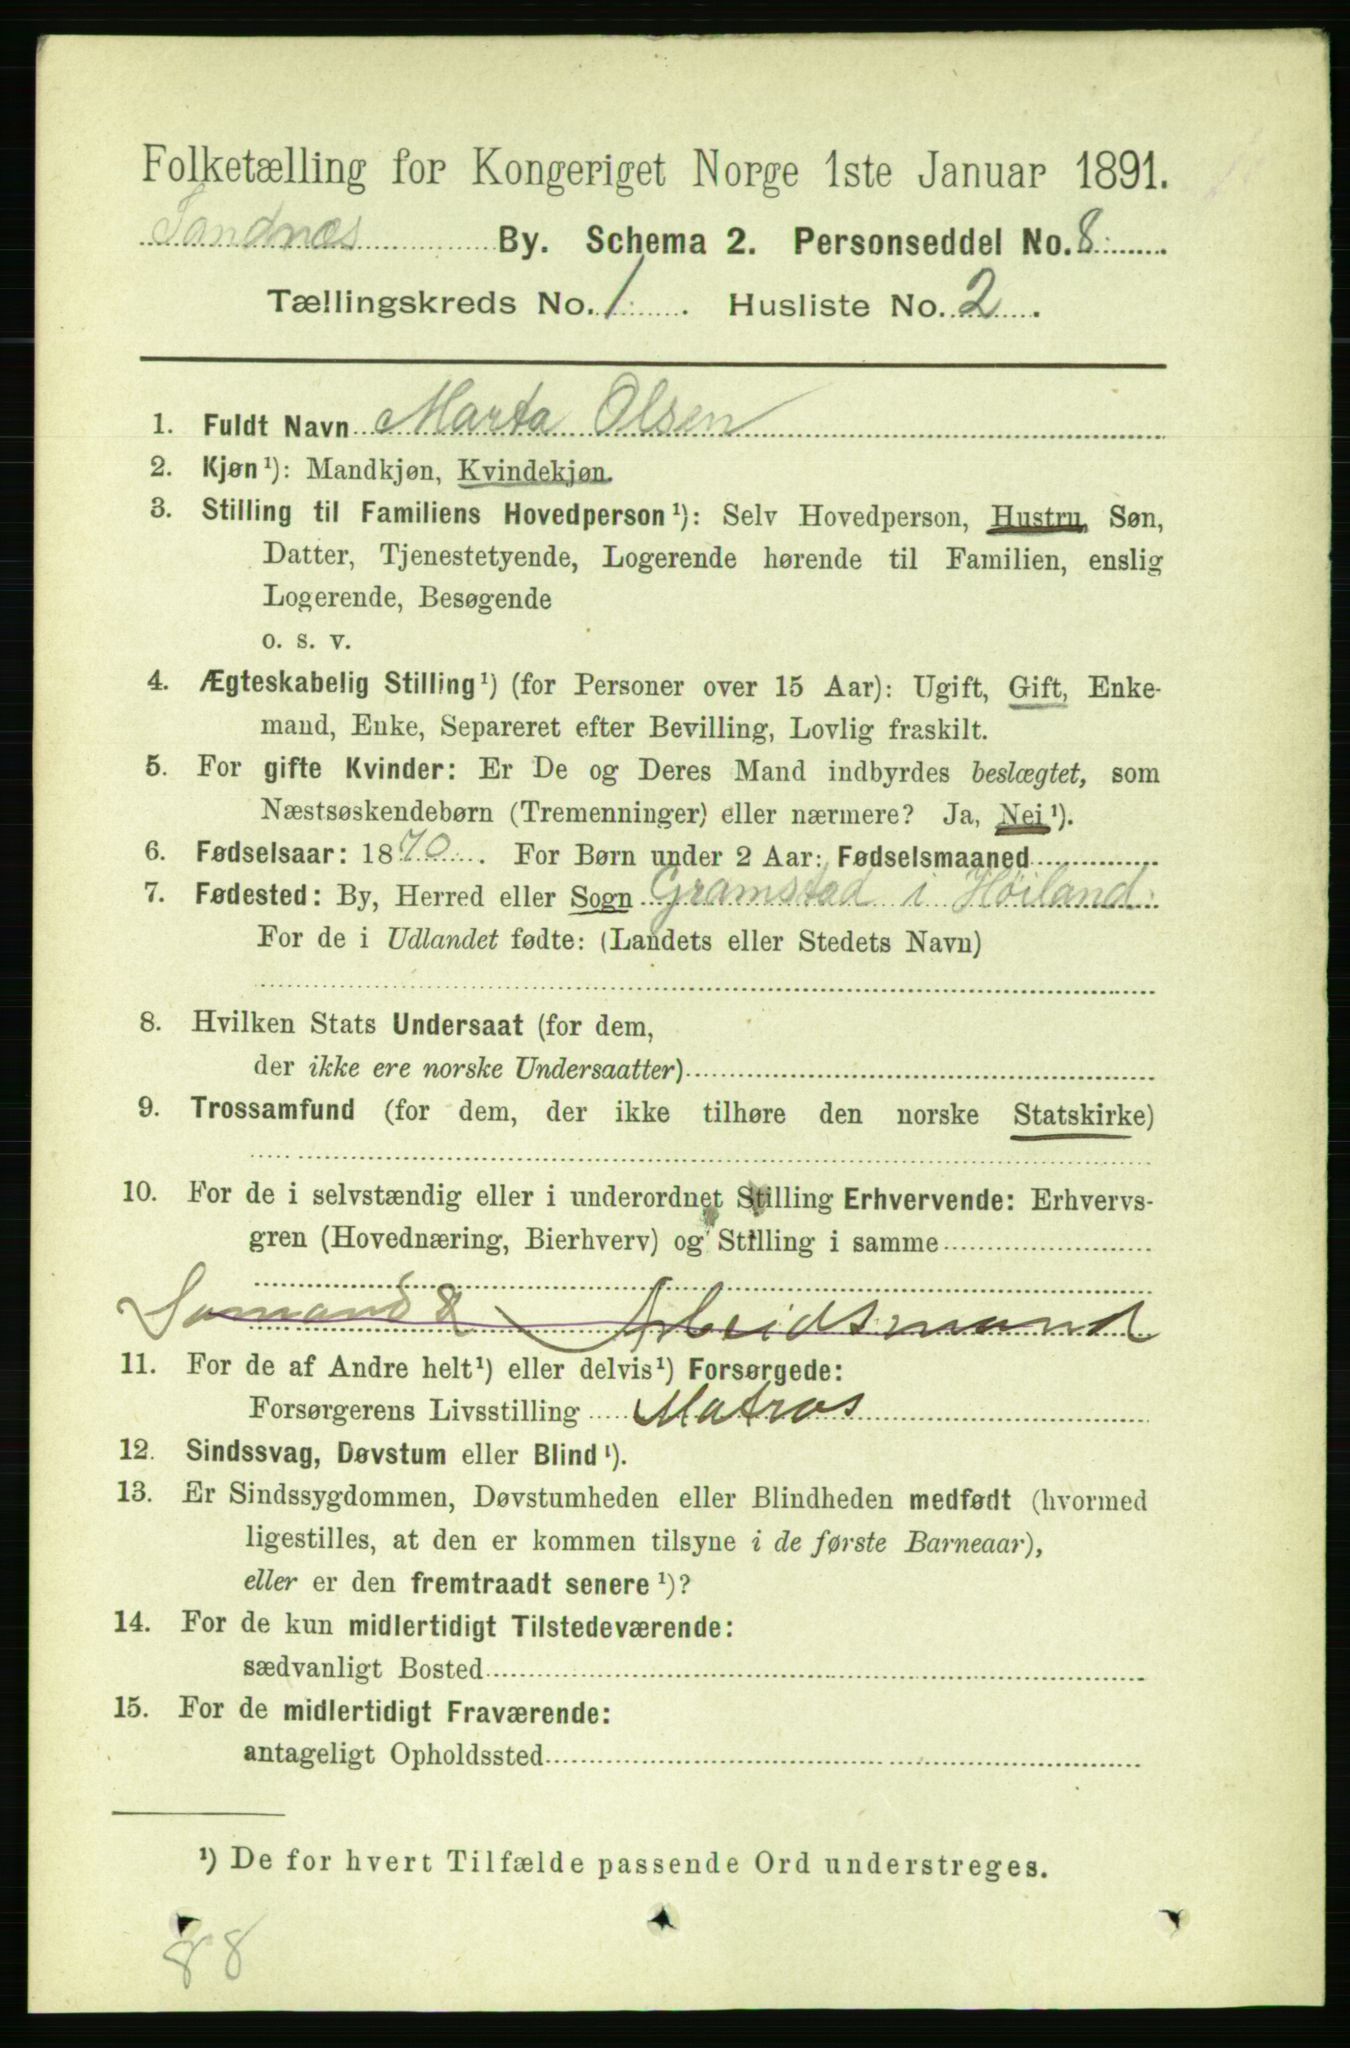 Folketælling for Kongeriget Norge 1ste Januar 1891.
Sandnæs By. Schema 2. Personseddel No. 8
Tællingskreds No. 1. Husliste No. 2.
1. Fuldt Navn Marta Olsen
2. Kjøn¹): Mandkjøn, Kvindekjøn.
3. Stilling til Familiens Hovedperson¹): Selv Hovedperson, Hustru, Søn,
Datter, Tjenestetyende, Logerende hørende til Familien, enslig
Logerende, Besøgende
o. s. v.
4. Ægteskabelig Stilling¹) (for Personer over 15 Aar): Ugift, Gift, Enke-
mand, Enke, Separeret efter Bevilling, Lovlig fraskilt.
5. For gifte Kvinder: Er De og Deres Mand indbyrdes beslægtet, som
Næstsøskendebørn (Tremenninger) eller nærmere? Ja, Nei¹).
6. Fødselsaar: 1870. For Børn under 2 Aar: Fødselsmaaned
7. Fødested: By, Herred eller Sogn Gramstad i Höiland
For de i Udlandet fødte: (Landets eller Stedets Navn)
8. Hvilken Stats Undersaat (for dem,
der ikke ere norske Undersaatter)
9. Trossamfund (for dem, der ikke tilhøre den norske Statskirke)
10. For de i selvstændig eller i underordnet Stilling Erhvervende: Erhvervs-
gren (Hovednæring, Bierhverv) og Stilling i samme
Sømand & Arbeidsmand
11. For de af Andre helt¹) eller delvis¹) Forsørgede:
Forsørgerens Livsstilling Matros
12. Sindssvag, Døvstum eller Blind¹).
13. Er Sindssygdommen, Døvstumheden eller Blindheden medfødt (hvormed
ligestilles, at den er kommen tilsyne i de første Barneaar),
eller er den fremtraadt senere¹)?
14. For de kun midlertidigt Tilstedeværende:
sædvanligt Bosted
15. For de midlertidigt Fraværende:
antageligt Opholdssted
¹) De for hvert Tilfælde passende Ord understreges.
88